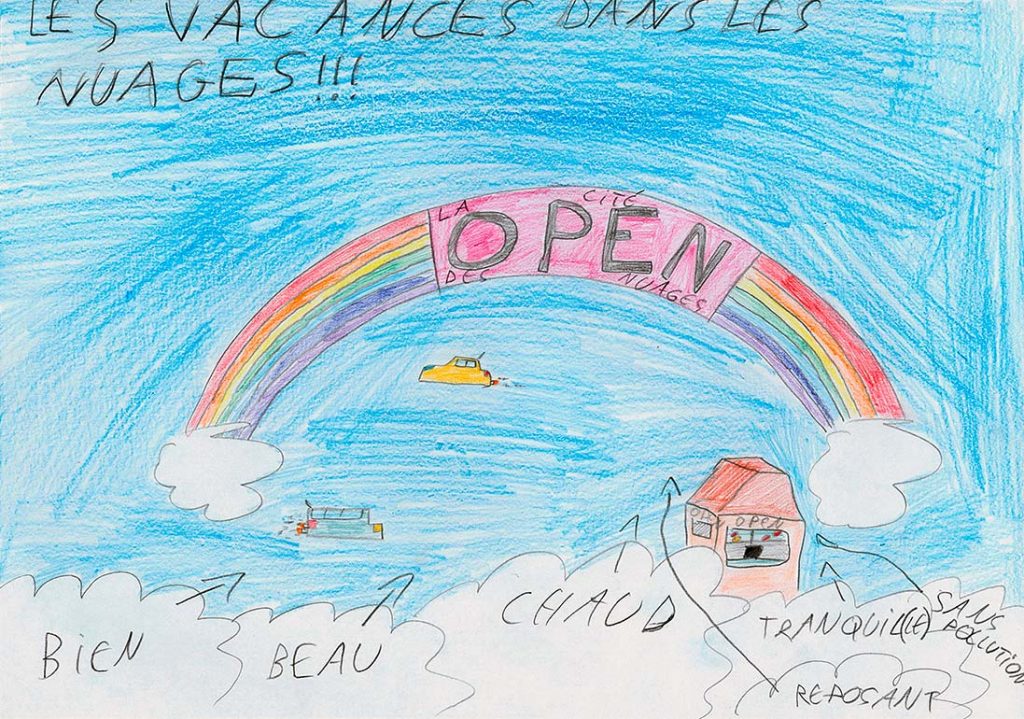 LES VACANCES DANS LES
NUAGES!!!
LA CITÉ
OPEN
DES NUAGES
OPEN OPEN
BIEN
BEAU
CHAUD
TRANQUIL(LE)
SANS
POLLUTION
REPOSANT